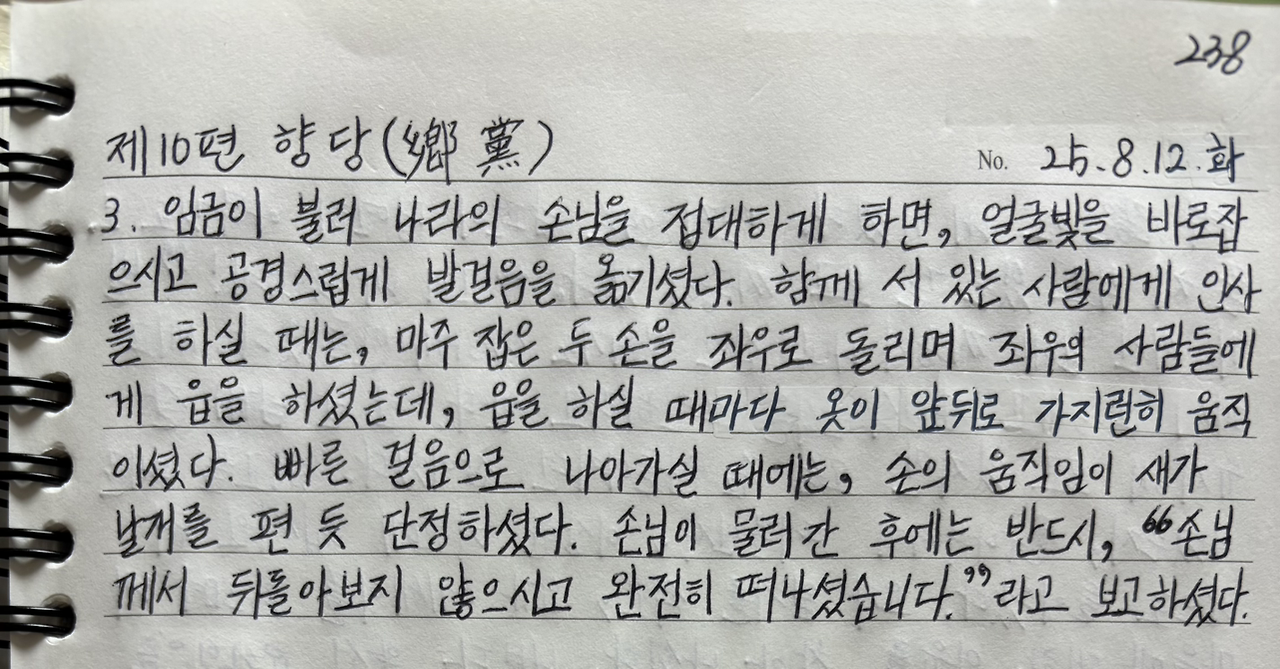 238
제10편 향당(鄕黨)
No. 25.8.12.화
3. 임금이 불러 나라의 손님을 접대하게 하면, 얼굴빛을 바로잡
으시고 공경스럽게 발걸음을 옮기셨다. 함께 서 있는 사람에게 인사
를 하실 때는, 마주 잡은 두 손을 좌우로 돌리며 좌우의 사람들에
게 읍을 하셨는데, 읍을 하실 때마다 옷이 앞뒤로 가지런히 움직
이셨다. 빠른 걸음으로 나아가실 때에는, 손의 움직임이 새가
날개를 편 듯 단정하셨다. 손님이 물러간 후에는 반드시, “손님
께서 뒤돌아보지 않으시고 완전히 떠나셨습니다.”라고 보고하셨다.